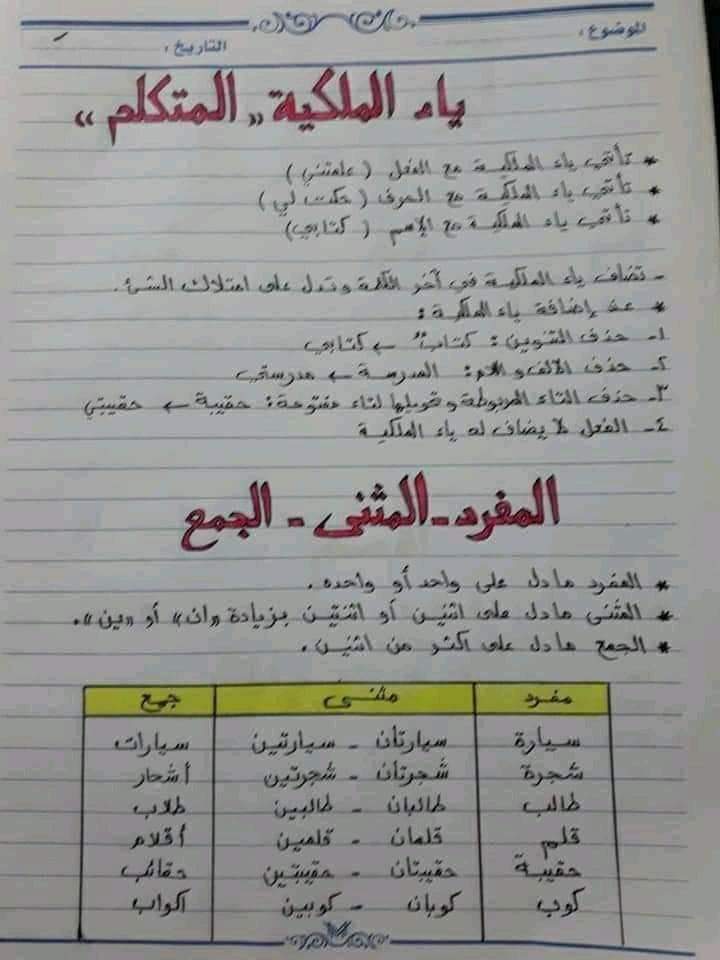 الموضوع:
التاريخ:
ياء الملكية "المتكلم"
* تأتي ياء الملكية مع الفعل (علمتني)
* تأتي ياء الملكية مع الحرف (حكت لي)
* تأتي ياء الملكية مع الإسم (كتابي)
- تضاف ياء الملكية في آخر الكلمة وتدل على امتلاك الشئ.
* عند إضافة ياء الملكية:
١- حذف التنوين: كتابٌ ← كتابي
٢- حذف الألف و اللام: المدرسة ← مدرستي
٣- حذف التاء المربوطة وتحويلها لتاء مفتوحة: حقيبة ← حقيبتي
٤- الفعل لا يضاف له ياء الملكية
المفرد - المثنى - الجمع
* المفرد مادل على واحد أو واحده.
* المثنى مادل على اثنين أو اثنتين بزيادة "ان" أو "ين".
* الجمع مادل على اكثر من اثنين.
مفرد مثنى جمع
سيارة سيارتان - سيارتين سيارات
شجرة شجرتان - شجرتين أشجار
طالب طالبان - طالبين طلاب
قلم قلمان - قلمين أقلام
حقيبة حقيبتان - حقيبتين حقائب
كوب كوبان - كوبين اكواب